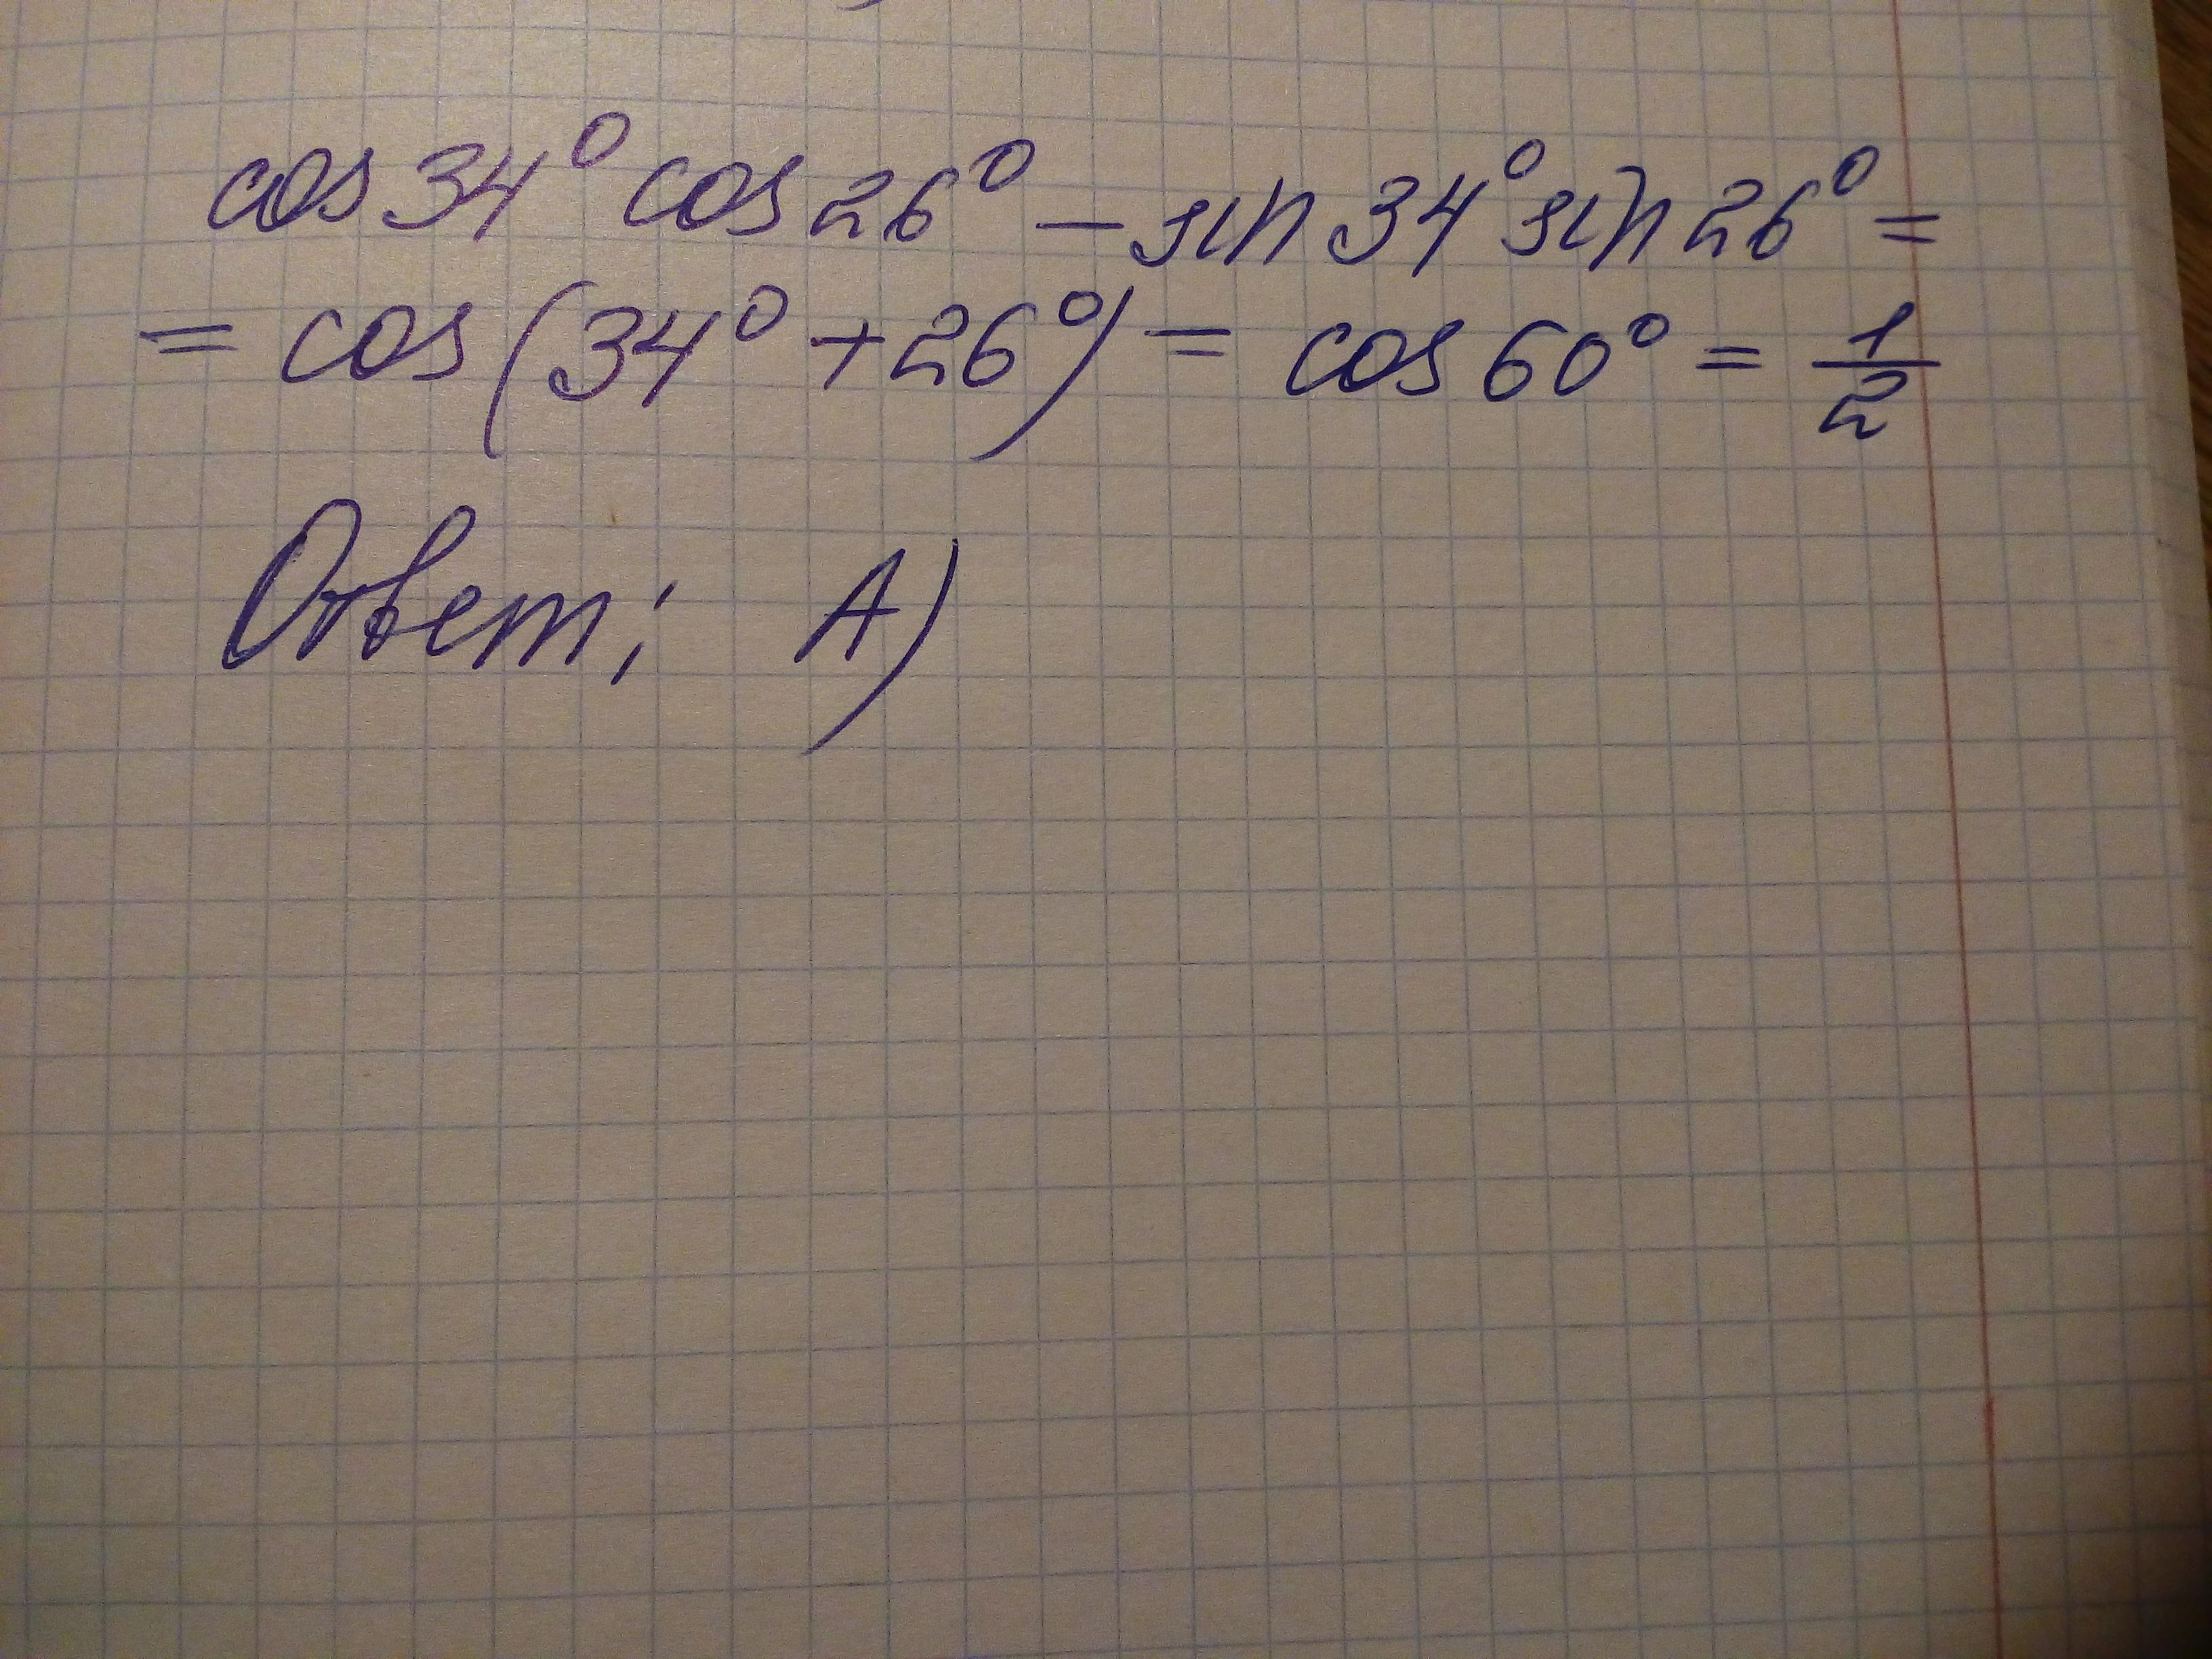 cos 34° cos 26° – sin 34° sin 26° =
= cos (34° + 26°) = cos 60° = 1/2
Ответ: А)